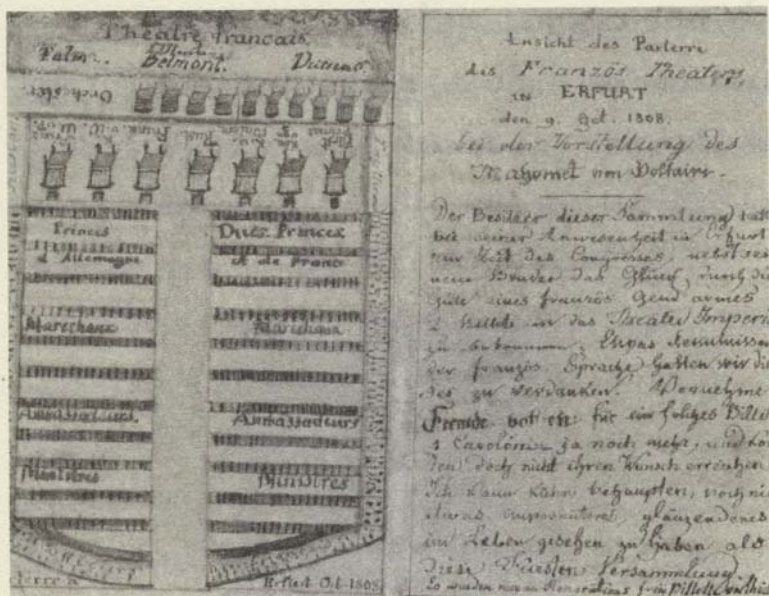 Theatre francais.
Belmont.
Orchester
Princes
d'Allemagne
Ducs Princes
et de France
Marechaux
Marechaux
Ambassadeurs
Ambassadeurs
Ministres
Ministres
Erfurt Oct. 1808
Ansicht des Parterre
des Französ Theaters
in ERFURT
den 9. Oct. 1808.
bei der Vorstellung des
Mahomet von Voltaire.
Der Besitzer dieser Sammlung hatt
bei seiner Anwesenheit in Erfurt
zur Zeit des Congresses, nebst sei
nem Bruder das Glück, durch die
Güte eines französ. Gend'armes
2 Billets in das Theatre Imperia
zu bekommen. Etwas Reminissen
der französ. Sprache hatten wir die
ses zu verdanken. Vornehme
Fremde bot en für ein solches Billet
1 Carolin ja noch mehr, und kon
ten doch nicht ihren Wunsch erreichen
Ich kann kühn behaupten, noch nie
etwas imposanteres, glänzenderes
im Leben gesehen zu haben als
diese Fürsten Versammlung.